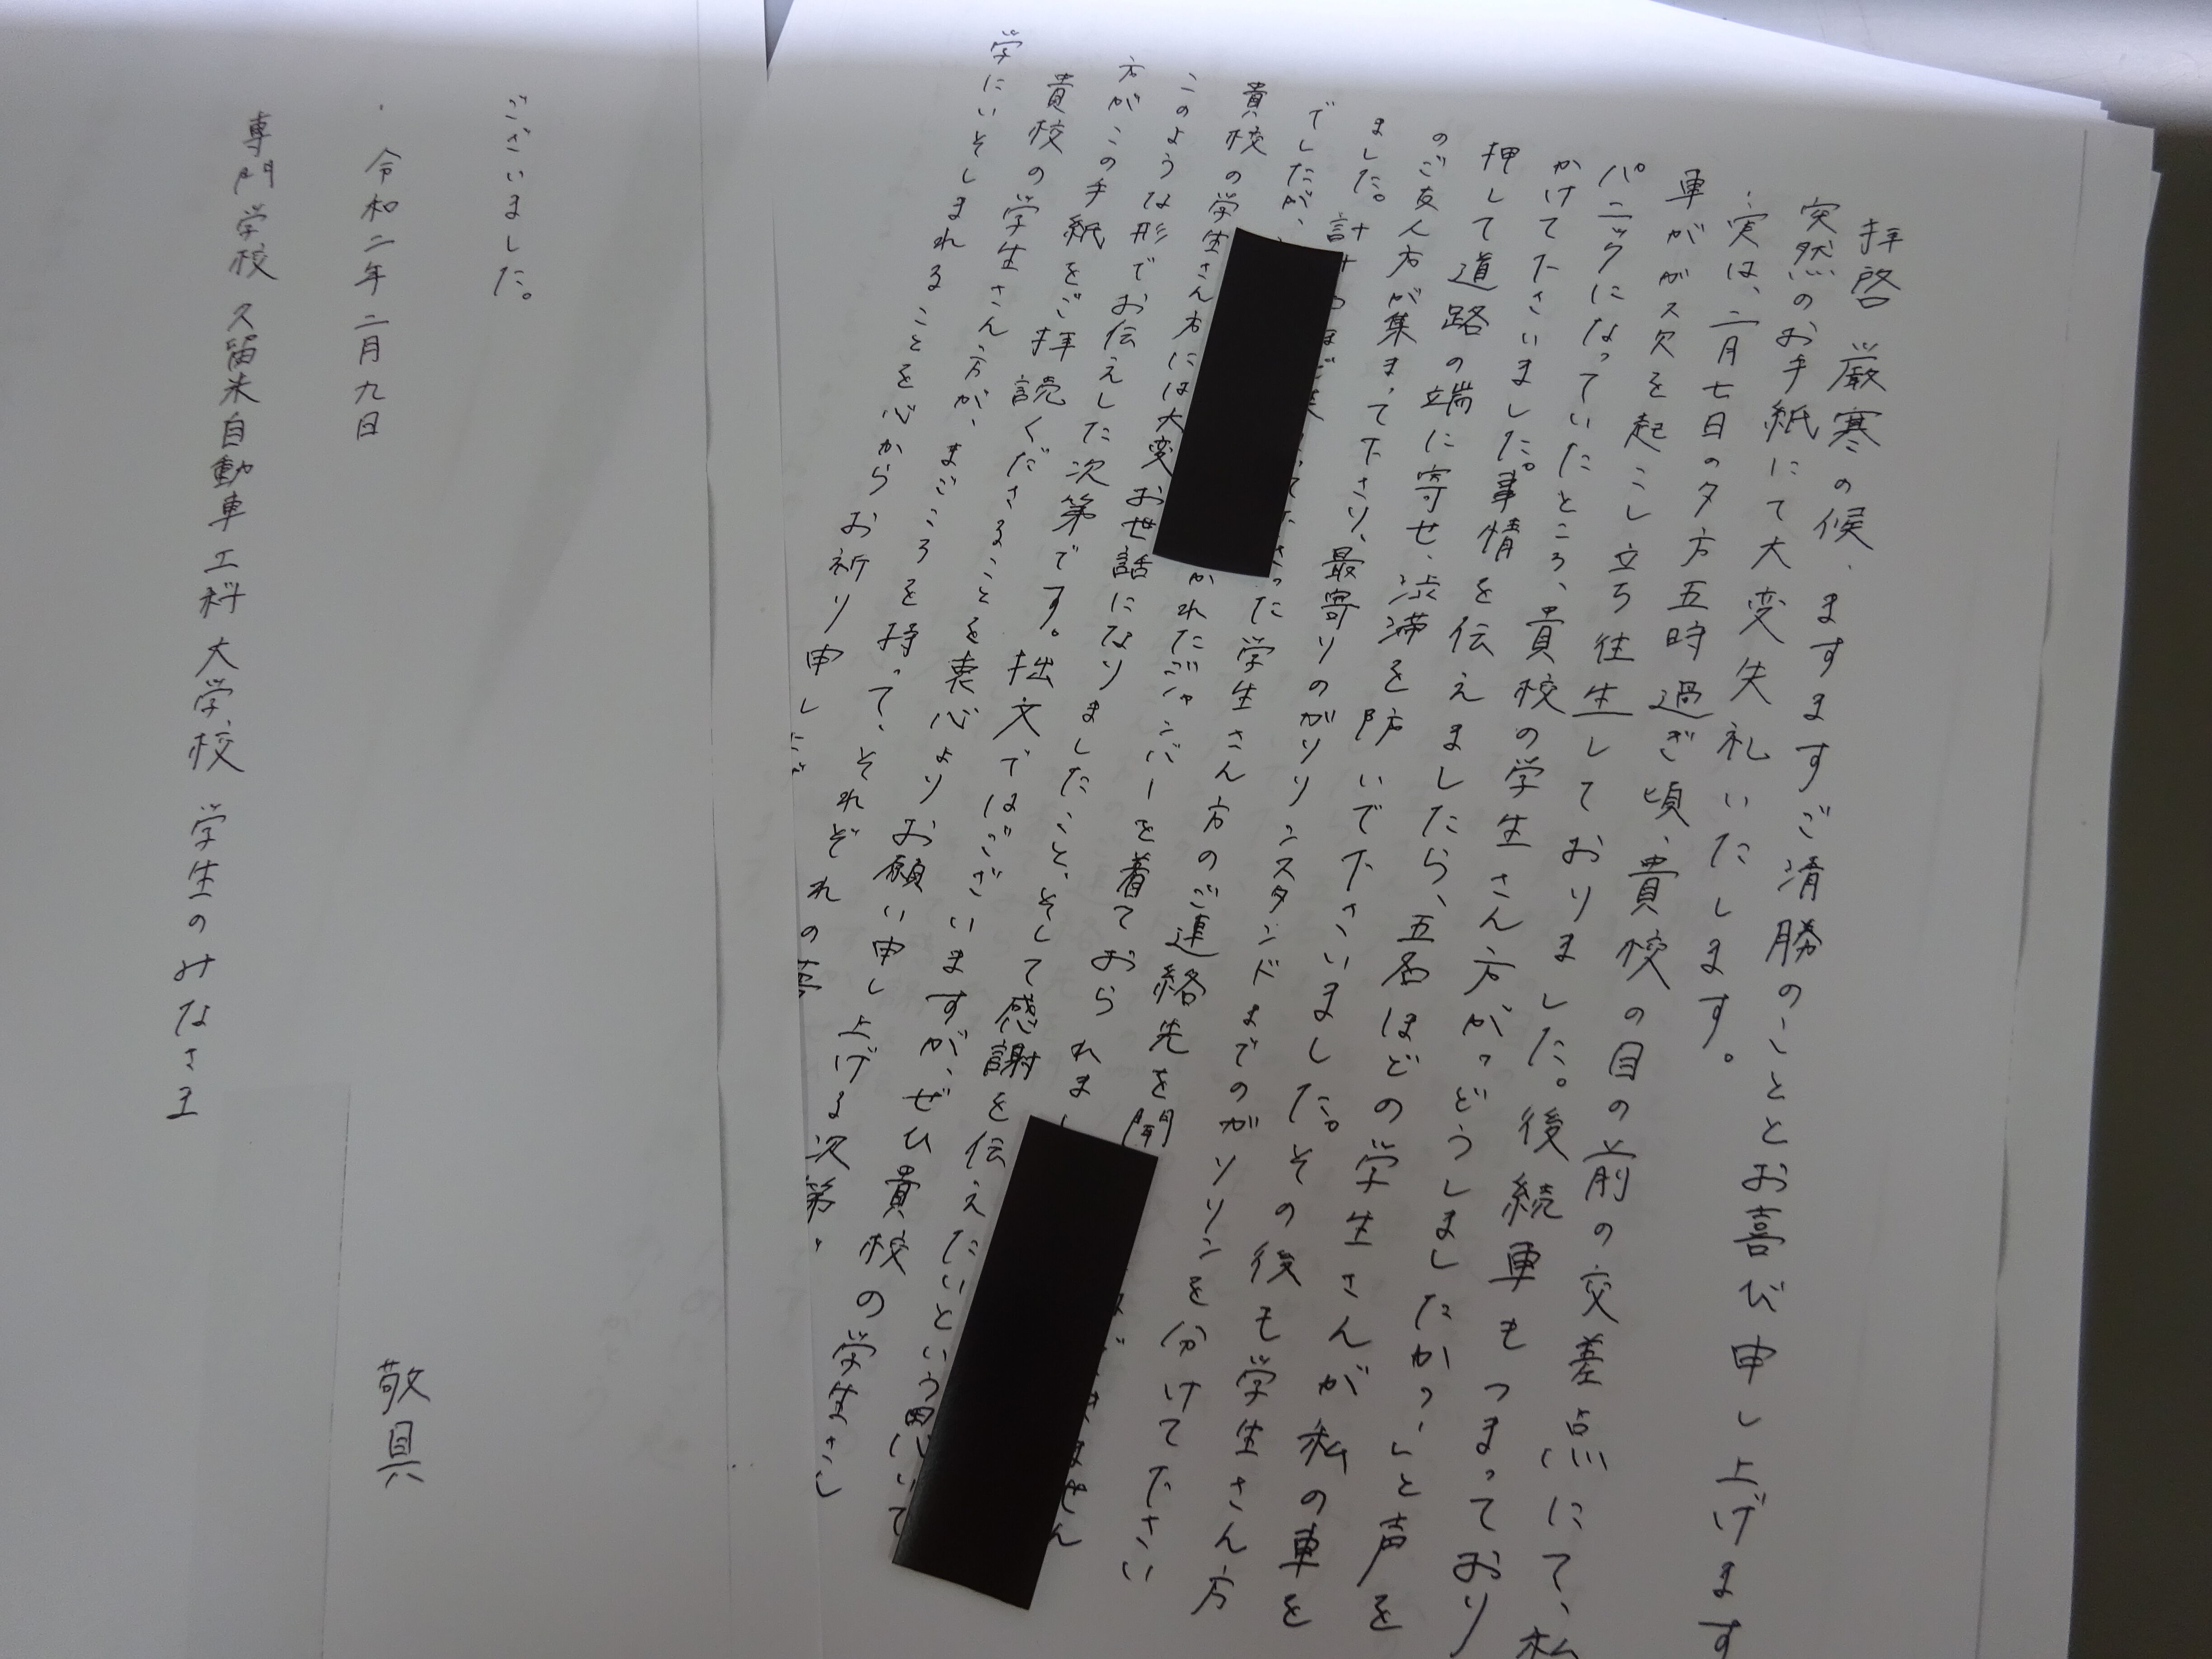 拝啓 厳寒の候、ますますご清勝のこととお喜び申し上げます
突然のお手紙にて大変失礼いたします。
実は、二月七日の夕方五時過ぎ頃、貴校の目の前の交差点にて、私
車がガス欠を起こし立ち往生しておりました。後続車もつまっており
パニックになっていたところ、貴校の学生さん方が「どうしましたか?」と声を
かけて下さいました。事情を伝えましたら、五名ほどの学生さんが私の車を
押して道路の端に寄せ、渋滞を防いで下さいました。その後も学生さん方
のご友人方が集まって下さり、最寄りのガソリンスタンドまでのガソリンを分けて下さい
ました。計
でしたが、 った学生さん方のご連絡先を聞
貴校の学生さん かれたジャンバーを着ておられまし ません
このような形でお伝えした次第です。
方がこの手紙をご拝読くださることを衷心よりお願い申し上げる次第
方には大変お世話になりましたこと、そして感謝を伝えたいという思いにて
拙文ではございますが、ぜひ貴校の学生さ
貴校の学生さん方が、まごころを持って、それぞれの夢
学にいそしまれることを心からお祈り申し
ございました。
令和二年二月九日
敬具
専門学校 久留米自動車工科大学校 学生のみなさま